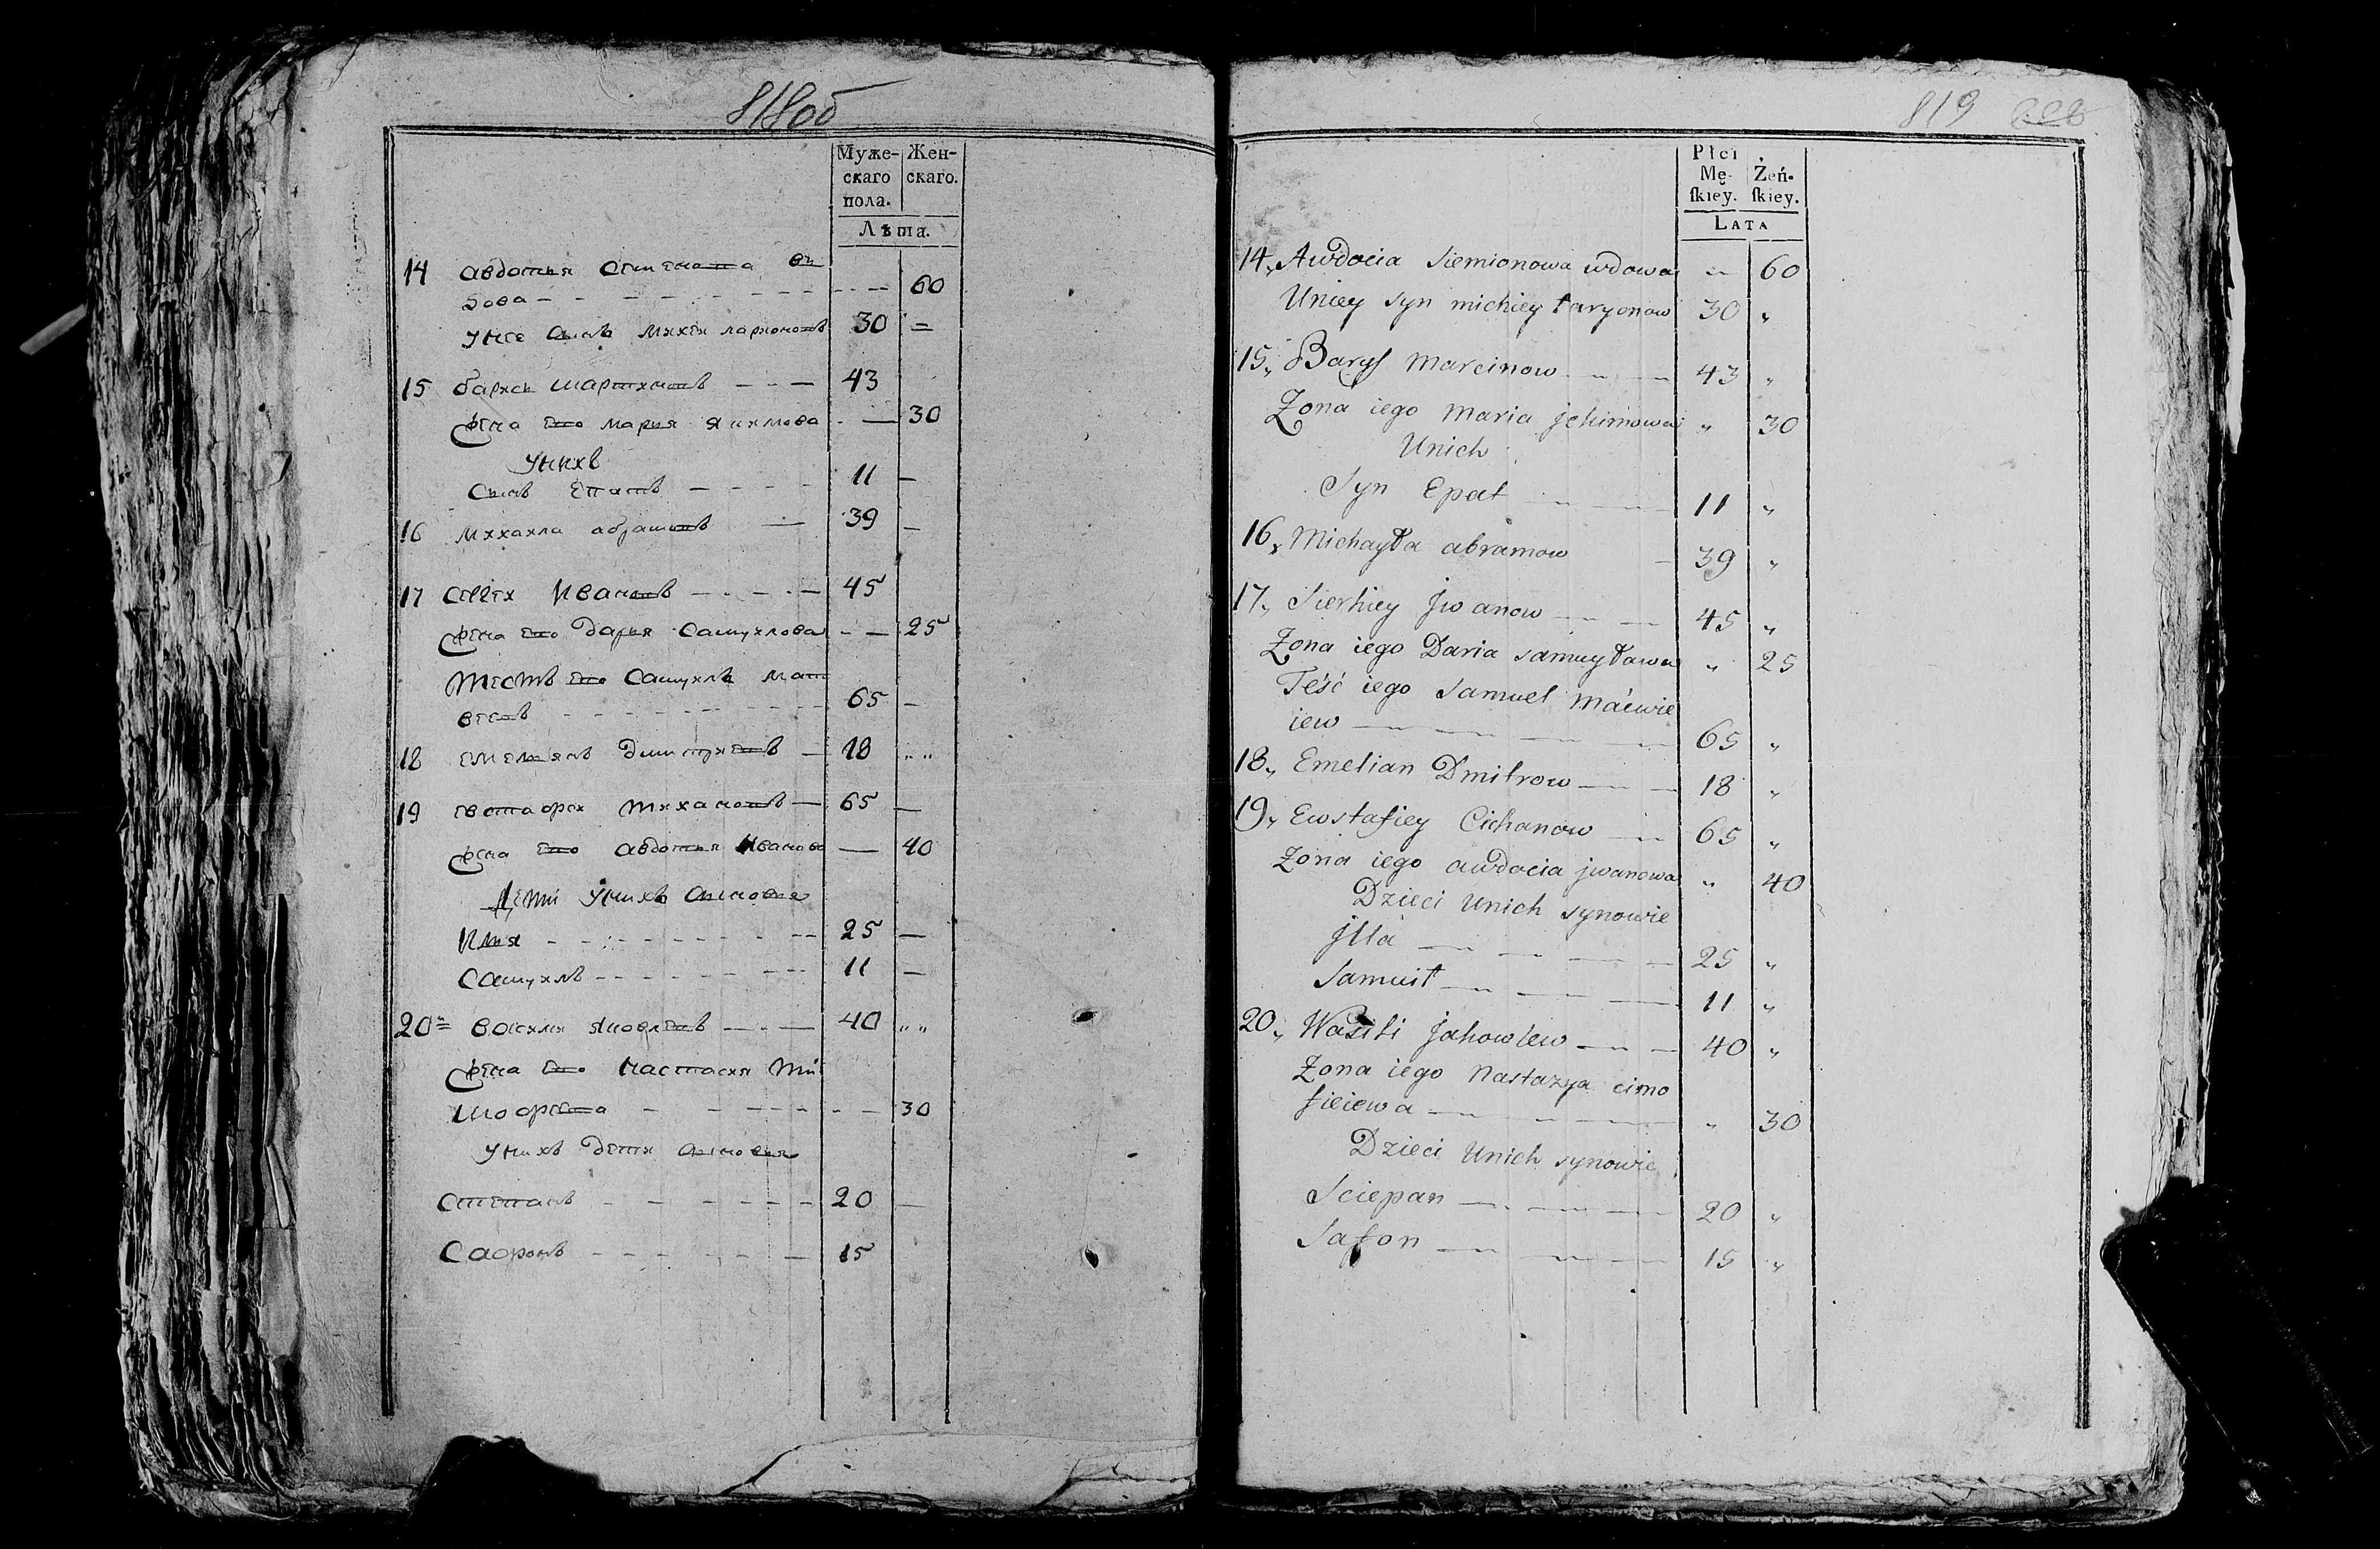 818об
Муже- Жен-
скаго скаго.
пола.
Лѣта.
14 авдотья семенова вд
ova - - - 60
унее сынъ михей ларионовъ 30 =
15 барысъ мартиновъ - - - 43
жена его марья якимова - — 30
унихъ
Сынъ Епатъ - - - - 11 —
16 михайла абрамовъ — 39 —
17 Сергей Ивановъ - - - - 45
жена его дарья самуйлова - — 25
тесть его Самуйлъ мат
веевъ - - - - 65 —
18 емельянъ дмитриевъ — 18 „ „
19 евстафей тихановъ — 65 —
жена его авдотья Иванова — 40
Дети унихъ сыновья
Илья - - - - 25 —
Самуйлъ - - - - 11 —
20 = василий яковлевъ — - — 40 „ „
жена его настасия ти
мофеева - - - - 30
унихъ дети сыновья
Степанъ - - - - 20 —
Сафонъ - - - - 15
819
Płci
Mę- Żeń-
ſkiey. ſkiey.
LATA
14„ Awdocia Siemionowa wdowa „ 60
Uniey syn michiey łaryonow 30 „
15„ Barys marcinow 43 „
Żona iego maria jekimowa „ 30
Unich
Syn Epat 11 „
16„ Michayła abramow - 39 „
17„ Sierhiey jwanow 45 „
Żona iego Daria samuyława „ 25
Teść iego Samuel maćwie
iew 65 „
18„ Emelian Dmitrow 18 „
19„ Ewstafiey Cichanow 65 „
Żona iego awdocia jwanowa „ 40
Dzieci Unich synowie
jlla 25 „
Samuił 11 „
20„ Wasili jakowlew 40 „
Żona iego Nastazya cimo
fieiewa „ 30
Dzieci Unich synowie
Sciepan 20 „
Safon 15 „